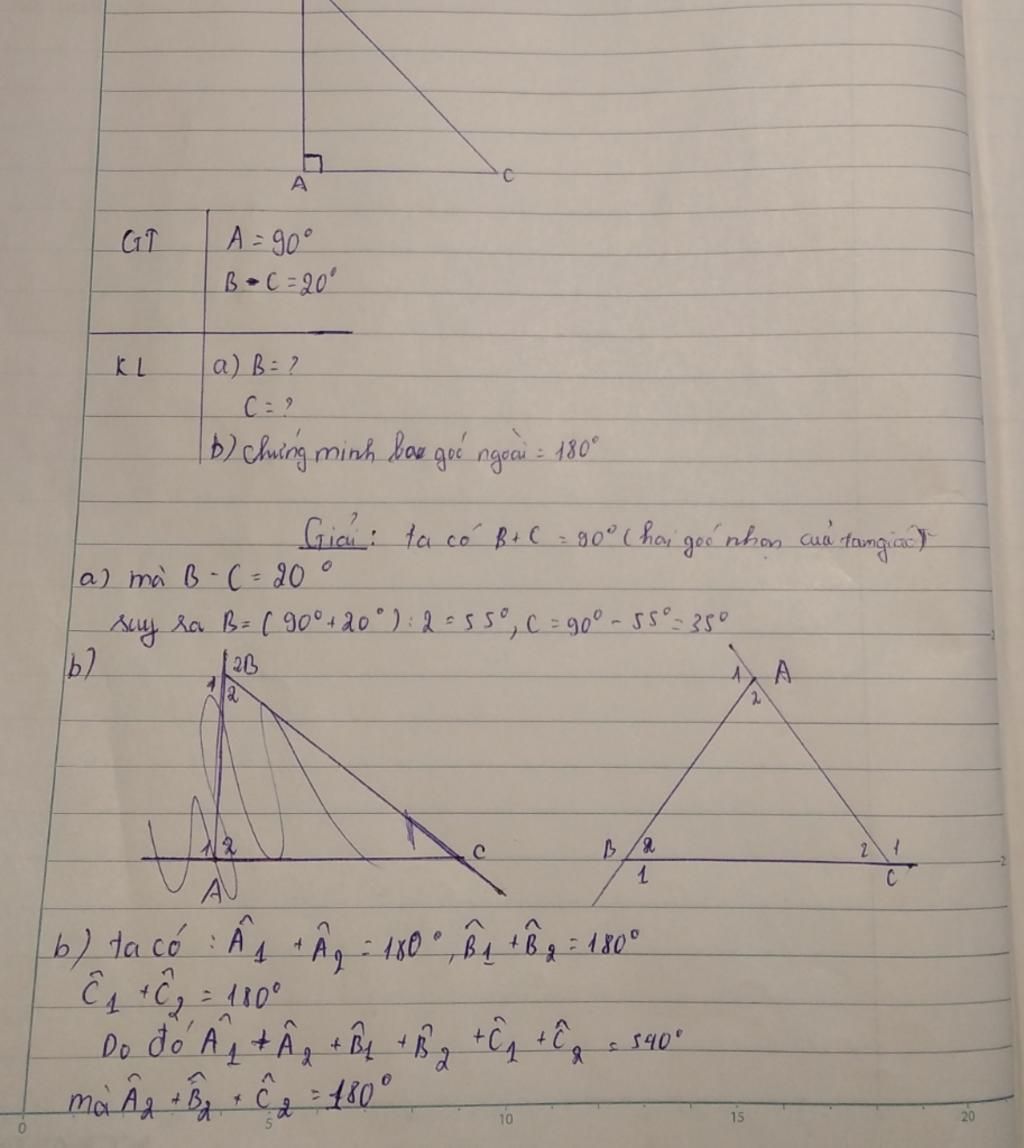 A C
GT A = 90°
B - C = 20°
KL a) B = ?
C = ?
b) chứng minh ba góc ngoài = 180°
Giải: ta có B + C = 90° (hai góc nhọn của tam giác)
a) mà B - C = 20°
suy ra B = (90° + 20°) : 2 = 55°, C = 90° - 55° = 35°
b) 2B 1 A
1 2 2
1 2 C B 2 2 1
A 1 C
b) ta có : Â1 + Â2 = 180°, B̂1 + B̂2 = 180°
Ĉ1 + Ĉ2 = 180°
Do đó Â1 + Â2 + B̂1 + B̂2 + Ĉ1 + Ĉ2 = 540°
mà Â2 + B̂2 + Ĉ2 = 180°
0 5 10 15 20